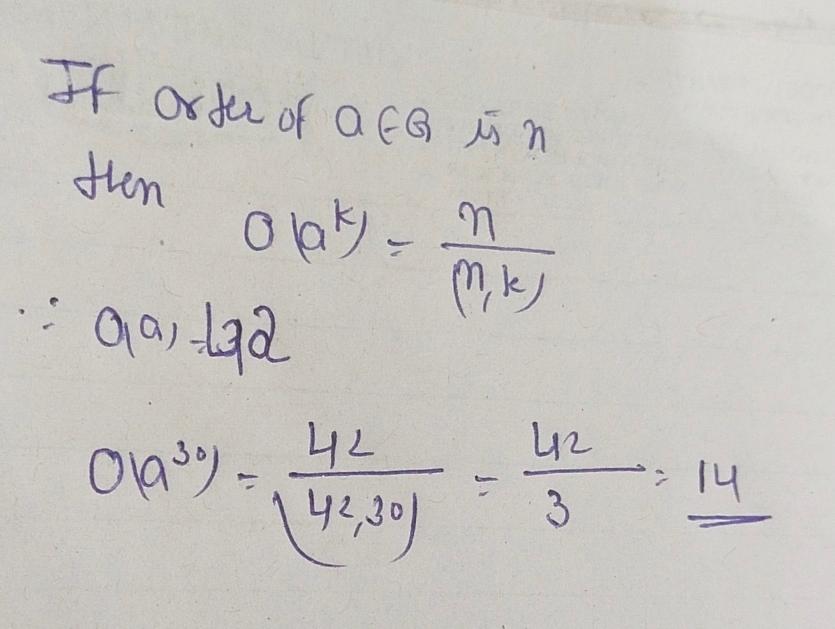 If order of a ∈ G is n
then
O(a^k) = n/(n,k)
∵ O(a) = 42
O(a^30) = 42/(42,30) = 42/3 = 14